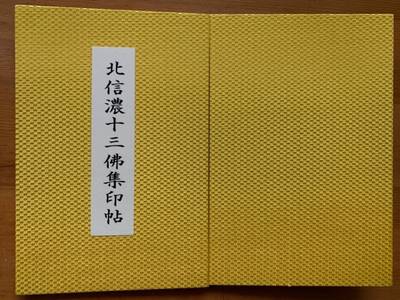 北信濃十三佛集印帖